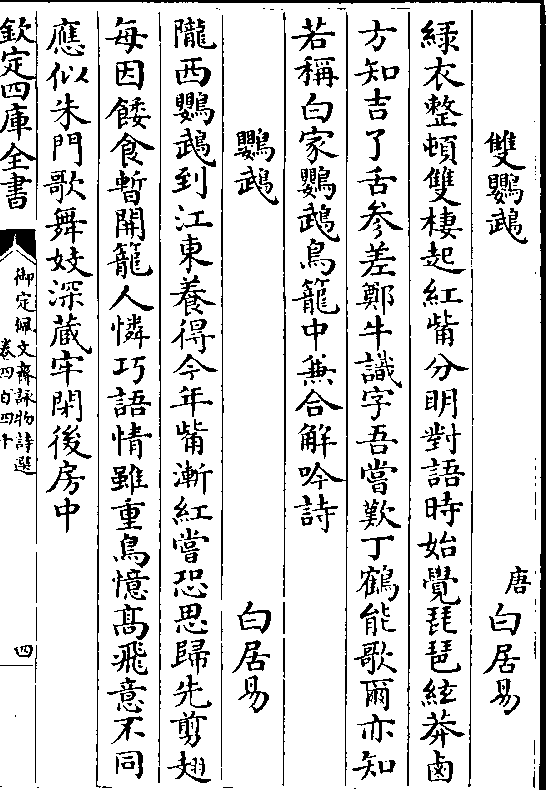 雙鸚鵡　唐　白居易
綠衣整頓雙棲起紅觜分明對語時始覺琵琶絃莽鹵
方知吉了舌參差鄭牛識字吾嘗歎丁鶴能歌爾亦知
若稱白家鸚鵡鳥籠中兼合解吟詩
鸚鵡　白居易
隴西鸚鵡到江東養得今年觜漸紅嘗恐思歸先剪翅
每因餧食暫開籠人憐巧語情雖重鳥憶髙飛意不同
應似朱門歌舞妓深蔵牢閉後房中
欽定四庫全書
御定佩文齋詠物詩選
卷四百四十
四